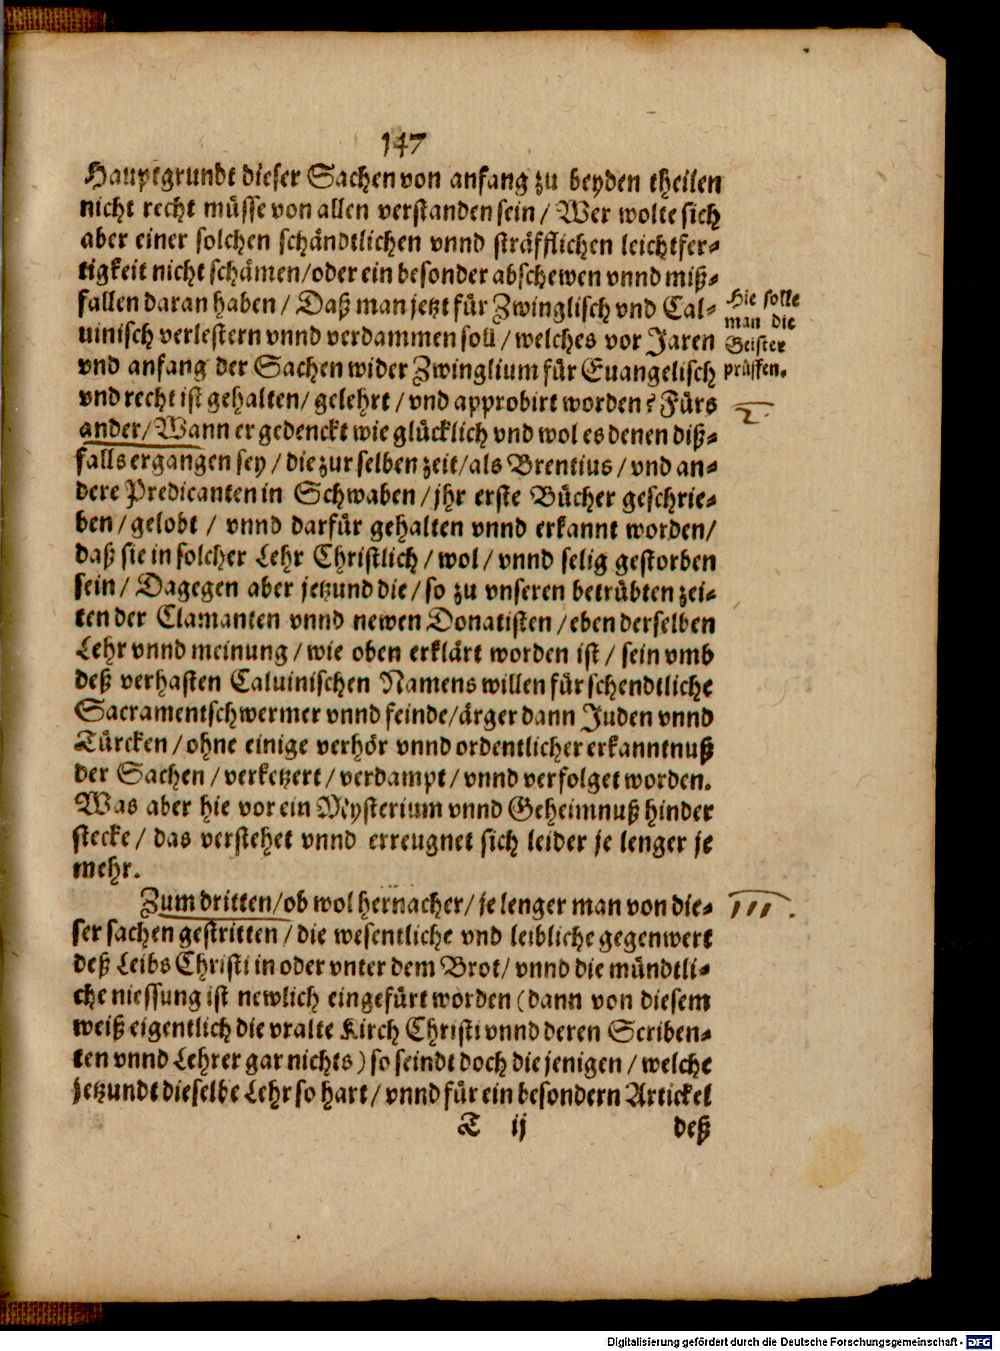 147
Hauptgrundt dieser Sachen von anfang zu beyden theilen
nicht recht müsse von allen verstanden sein / Wer wolte sich
aber einer solchen schändtlichen vnnd sträfflichen leichtfer-
tigkeit nicht schämen / oder ein besonder abschewen vnnd miß-
fallen daran haben / Daß man jetzt für Zwinglisch vnd Cal-
uinisch verlestern vnnd verdammen soll / welches vor Jaren
vnd anfang der Sachen wider Zwinglium für Euangelisch
vnd recht ist gehalten / gelehrt / vnd approbirt worden? Fürs
ander / Wann er gedenckt wie glücklich vnd wol es denen diß-
falls ergangen sey / die zur selben zeit / als Brentius / vnd an-
dere Predicanten in Schwaben / jhr erste Bücher geschrie-
ben / gelobt / vnnd darfür gehalten vnnd erkannt worden /
daß sie in solcher Lehr Christlich / wol / vnnd selig gestorben
sein / Dagegen aber jetzund die / so zu vnseren betrübten zei-
ten der Clamanten vnnd newen Donatisten / eben derselben
Lehr vnnd meinung / wie oben erklärt worden ist / sein vmb
deß verhasten Caluinischen Namens willen für schendtliche
Sacramentschwermer vnnd feinde / ärger dann Juden vnnd
Türcken / ohne einige verhör vnnd ordentlicher erkanntnuß
der Sachen / verketzert / verdampt / vnnd verfolget worden.
Was aber hie vor ein Mysterium vnnd Geheimnuß hinder
stecke / das verstehet vnnd erreugnet sich leider je lenger je
mehr.
Zum dritten / ob wol hernacher / je lenger man von die-
ser sachen gestritten / die wesentliche vnd leibliche gegenwert
deß Leibs Christi in oder vnter dem Brot / vnnd die mündtli-
che niessung ist newlich eingefürt worden (dann von diesem
weiß eigentlich die vralte Kirch Christi vnnd deren Scriben-
ten vnnd Lehrer gar nichts) so seindt doch die jenigen / welche
jetzundt dieselbe Lehr so hart / vnnd für ein besondern Artickel
T ij deß
Hie solle
man die
Geister
prüffen.
2.
III.
Digitalisierung gefördert durch die Deutsche Forschungsgemeinschaft - DFG